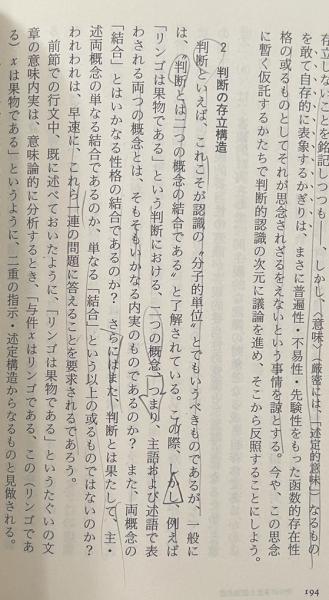 存立しないことを銘記しつつも――、しかし、〈意味〉（厳密には、「述定的意味」）なるもの
を敢て自存的に表象するかぎりは、まさに普遍性・不易性・先験性をもった函数的存在性
格の或るものとしてそれが思念されざるをえないという事情を諒とする。今や、この思念
に暫く仮託するかたちで判断的認識の次元に議論を進め、そこから反照することにしよう。
2 判断の存立構造
判断といえば、これこそが認識の〝分子的単位〟とでもいうべきものであるが、一般に
は、〝判断とは二つの概念の結合である〟と了解されている。この際、しかし、例えば
「リンゴは果物である」という判断における、二つの概念、つまり、主語および述語で表
わされる両つの概念とは、そもそもいかなる内実のものであるのか？ また、両概念の
「結合」とはいかなる性格の結合であるのか？ さらにはまた、判断とは果たして、主・
述両概念の単なる結合であるのか、単なる「結合」という以上の或るものではないのか？
われわれは、早速に、これら一連の問題に答えることを要求されるであろう。
前節での行文中、既に述べておいたように、「リンゴは果物である」というたぐいの文
章の意味内実は、意味論的に分析するとき、「与件xはリンゴである、この（リンゴであ
る）xは果物である」というように、二重の指示・述定構造からなるものと見做される。
194